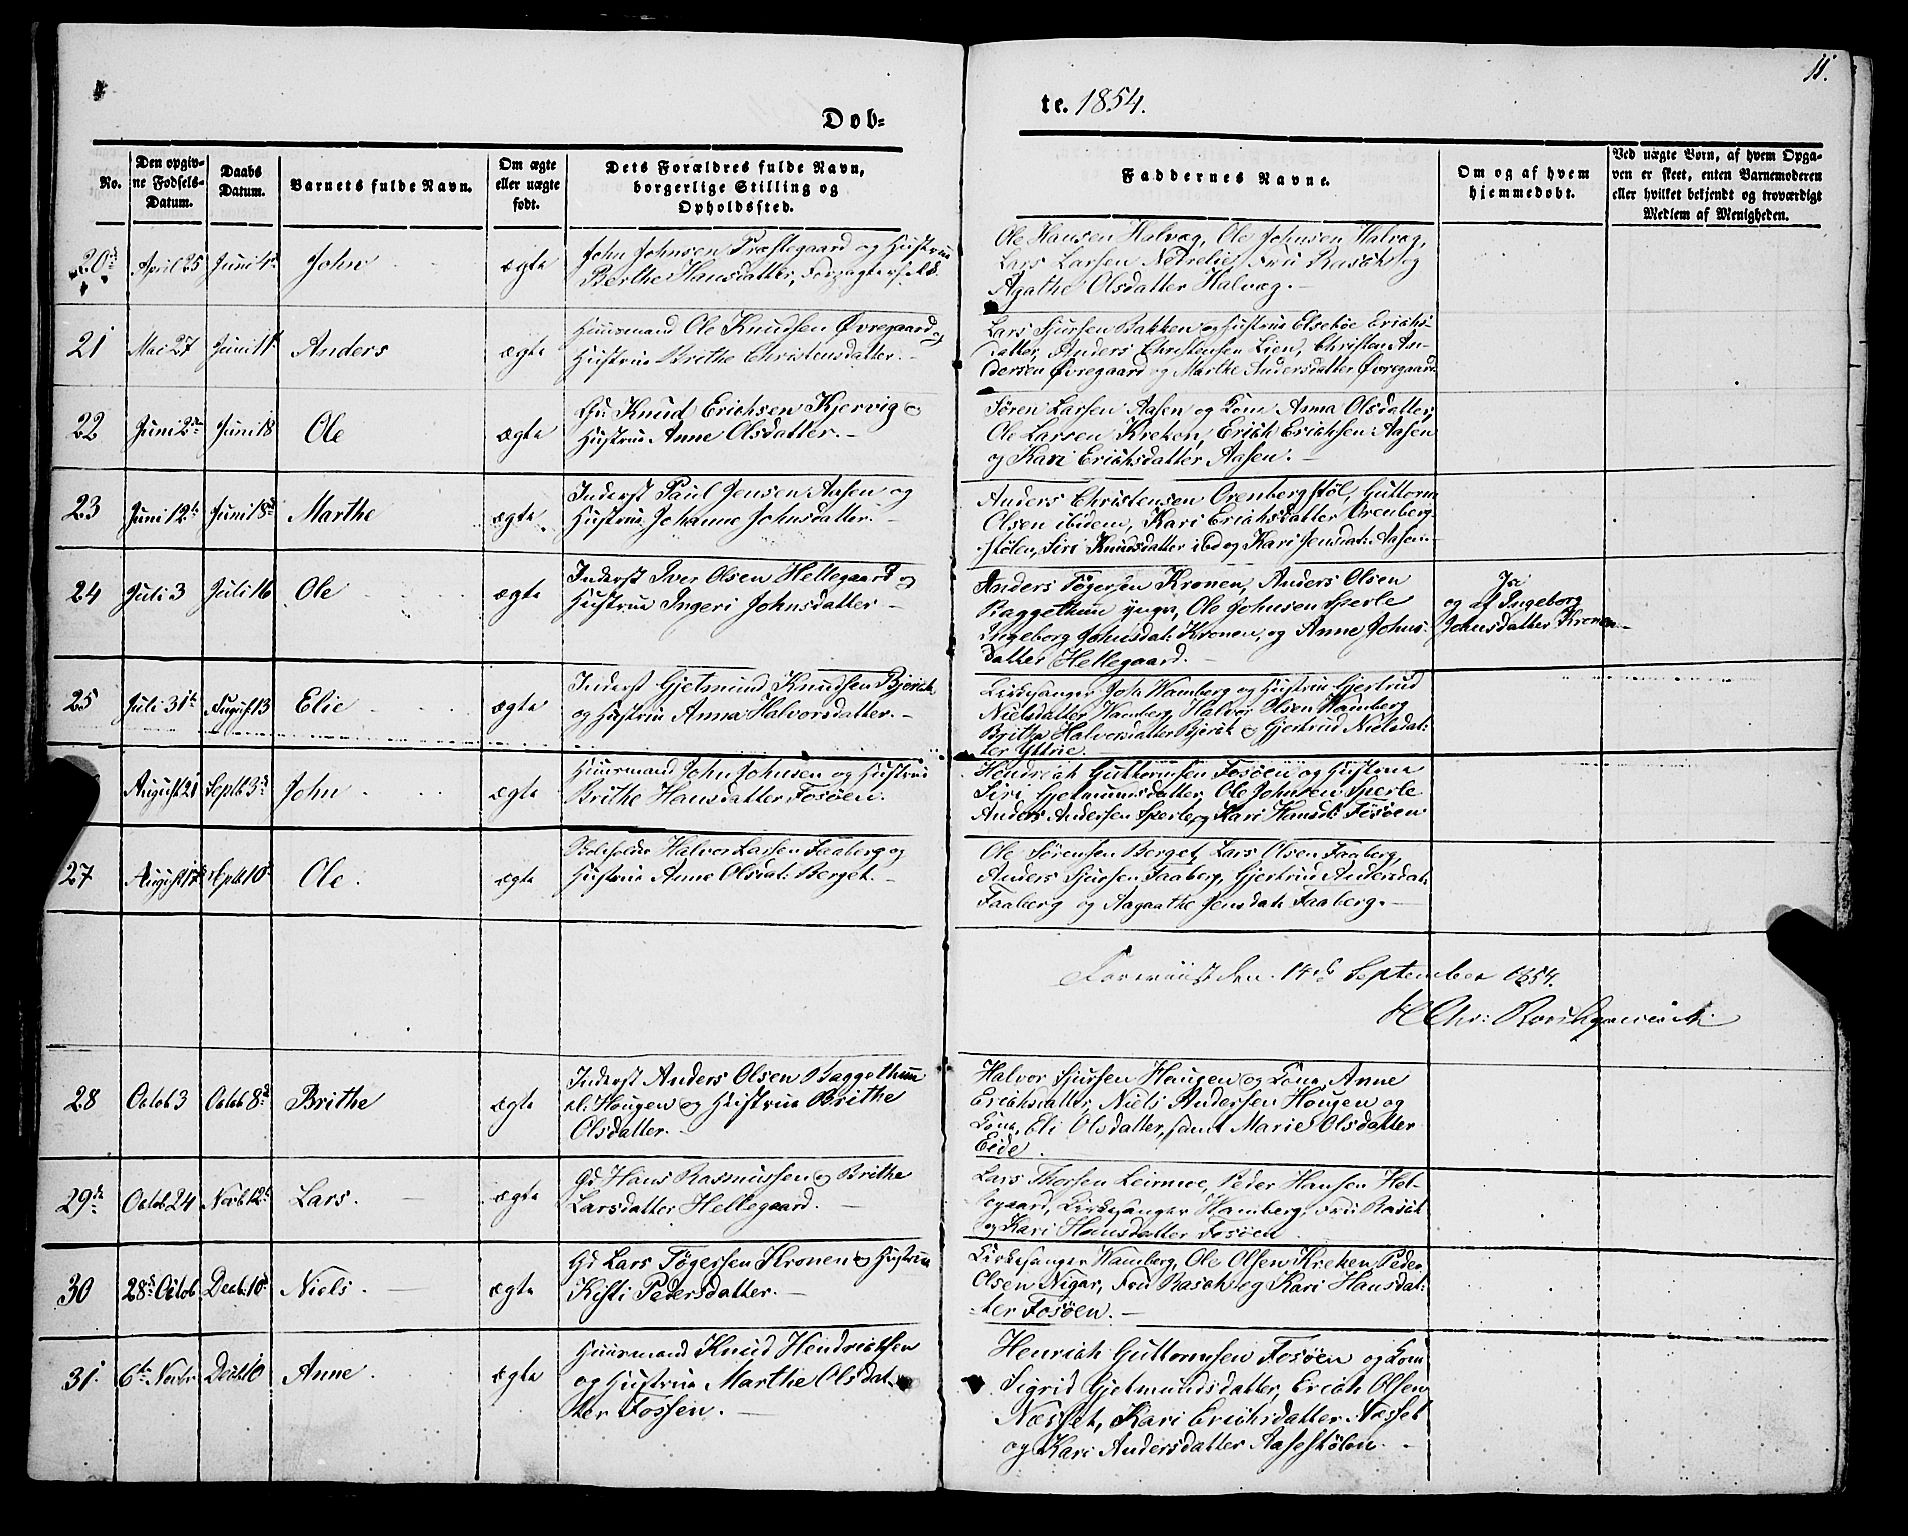 11.
Dob=
te. 1854.
No.
Den opgiv-
ne Fodsels-
Datum.
Daabs
Datum.
Barnets fulde Navn.
Om ægte
eller uægte
fodt.
Dets Forældres fulde Navn,
borgerlige Stilling og
Opholdssted.
Faddernes Navne.
Om og af hvem
hjemmedobt.
Ved uægte Born, af hvem Opga-
ven er skeet, enten Barnemoderen
eller hvilket bekjendt og troværdigt
Medlem af Menigheden.
20de April 25 Juni 4de John ægte
John Johnsen Præstegaard og Hustrue
Berthe Hansdatter,
Ole Hansen Halvæg, Ole Johnsen Halvæg,
Lars Larsen Nedrelie, Fru Rasch og
Agathe Olsdatter Halvæg.
21 Mai 27 Juni 11te Anders ægte
Huusmand Ole Knudsen Øvregaard og
Hustrue Brithe Christensdatter.
Lars Sjursen Bakken og Hustrue Elsebøe Erichs-
datter, Anders Christensen Lien, Christen An-
dersen Øvregaard og Marthe Andersdatter Øvregaard.
22 Juni 2den Juni 18 Ole ægte
Gd Knud Erichsen Kjervig og
Hustrue Anne Olsdatter.
Søren Larsen Aasen og Kone Anna Olsdatter,
Ole Larsen Kreken, Erich Erichsen Aasen
og Kari Erichsdatter Aasen.
23 Juni 12te Juni 18de Marthe ægte
Inderst Paul Jensen Aasen og
Hustrue Johanne Johnsdatter.
Anders Christensen Orenbergstøl, Guttorm
Olsen ibidem, Kari Erichsdatter Orenberg-
stølen, Siri Knudsdatter ibd og Kari Jensdat: Aasen.
24 Juli 3 Juli 16 Ole ægte
Inderst Iver Olsen Hellegaard og
Hustrue Ingeri Johnsdatter
Anders Tøgersen Kronen, Anders Olsen
Baggethun yngr, Ole Johnsen Sperle
Ingeborg Johnsdat: Kronen, og Anne Johns-
datter Hellegaard.
Ja
og af Ingeborg
Johnsdatter Kronen
25 Juli 31te August 13 Elie ægte
Inderst Gjetmund Knudsen Bjerk
og Hustrue Anna Halvorsdatter.
Kirkesanger Joh Wamberg og Hustrue Gjertrud
Nielsdatter Wamberg, Halvor Olsen Wamberg
Brithe Halvorsdatter Bjerk og Gjertrud Nielsdat-
ter Yttrie.
August 21 Septb 3de John ægte
Huusmand John Johnsen og Hustrue
Brithe Hansdatter Fosøen.
Hendrich Guttormsen Fosøen og Hustrue
Siri Gjetmundsdatter, Ole Johnsen Sperle
Anders Andersen Sperle og Kari Hansd: Fosøen
27 August Septb 10de Ole. ægte
Skoleholder Halvor Larsen Faaberg og
Hustrue Anne Olsdat: Berget.
Ole Sørensen Berget, Lars Olsen Faaberg,
Anders Sjursen Faaberg, Gjertrud Andersdat:
Faaberg og Aagaathe Jensdat: Faaberg.
Forevüist den 14de September 1854.
28 Octob 3 Octob 8de Brithe ægte
Inderst Anders Olsen Baggethun
el: Hougen og Hustrue Brithe
Olsdatter.
Halvor Sjursen Haugen og Kone Anne
Erichsdatter, Niels Andersen Hougen og
Kone Eli Olsdatter, samt Marie Olsdatter
Eide.
29de Octob 24 Novb 12te Lars. ægte
Gd Hans Rasmussen og Brithe
Larsdatter Hellegaard.
Lars Thorsen Leirmoe, Peder Hansen Hel-
legaard, Kirkesanger Wamberg, Fru Rasch
og Kari Hansdatter Fosøen
30 28de Octob Decb. 10de Niels. ægte
Gd Lars Tøgersen Kronen og Hustrue
Kisti Pedersdatter.
Kirkesanger Wamberg, Ole Olsen Kreken, Peder
Olsen Nigar, Fru Rasch og Kari Hansdat-
ter Fosøen.
31. 6te Novbr Decb 10 Anne ægte
Huusmand Knud Hendrichsen
og Hustrue Marthe Olsdat-
ter Fossen.
Henrich Guttormsen Fosøen og Kone
Sigrid Gjetmundsdatter, Erich Olsen
Næsset, Kari Erichsdatter Næsset
og Kari Andersdatter Aasestølen.